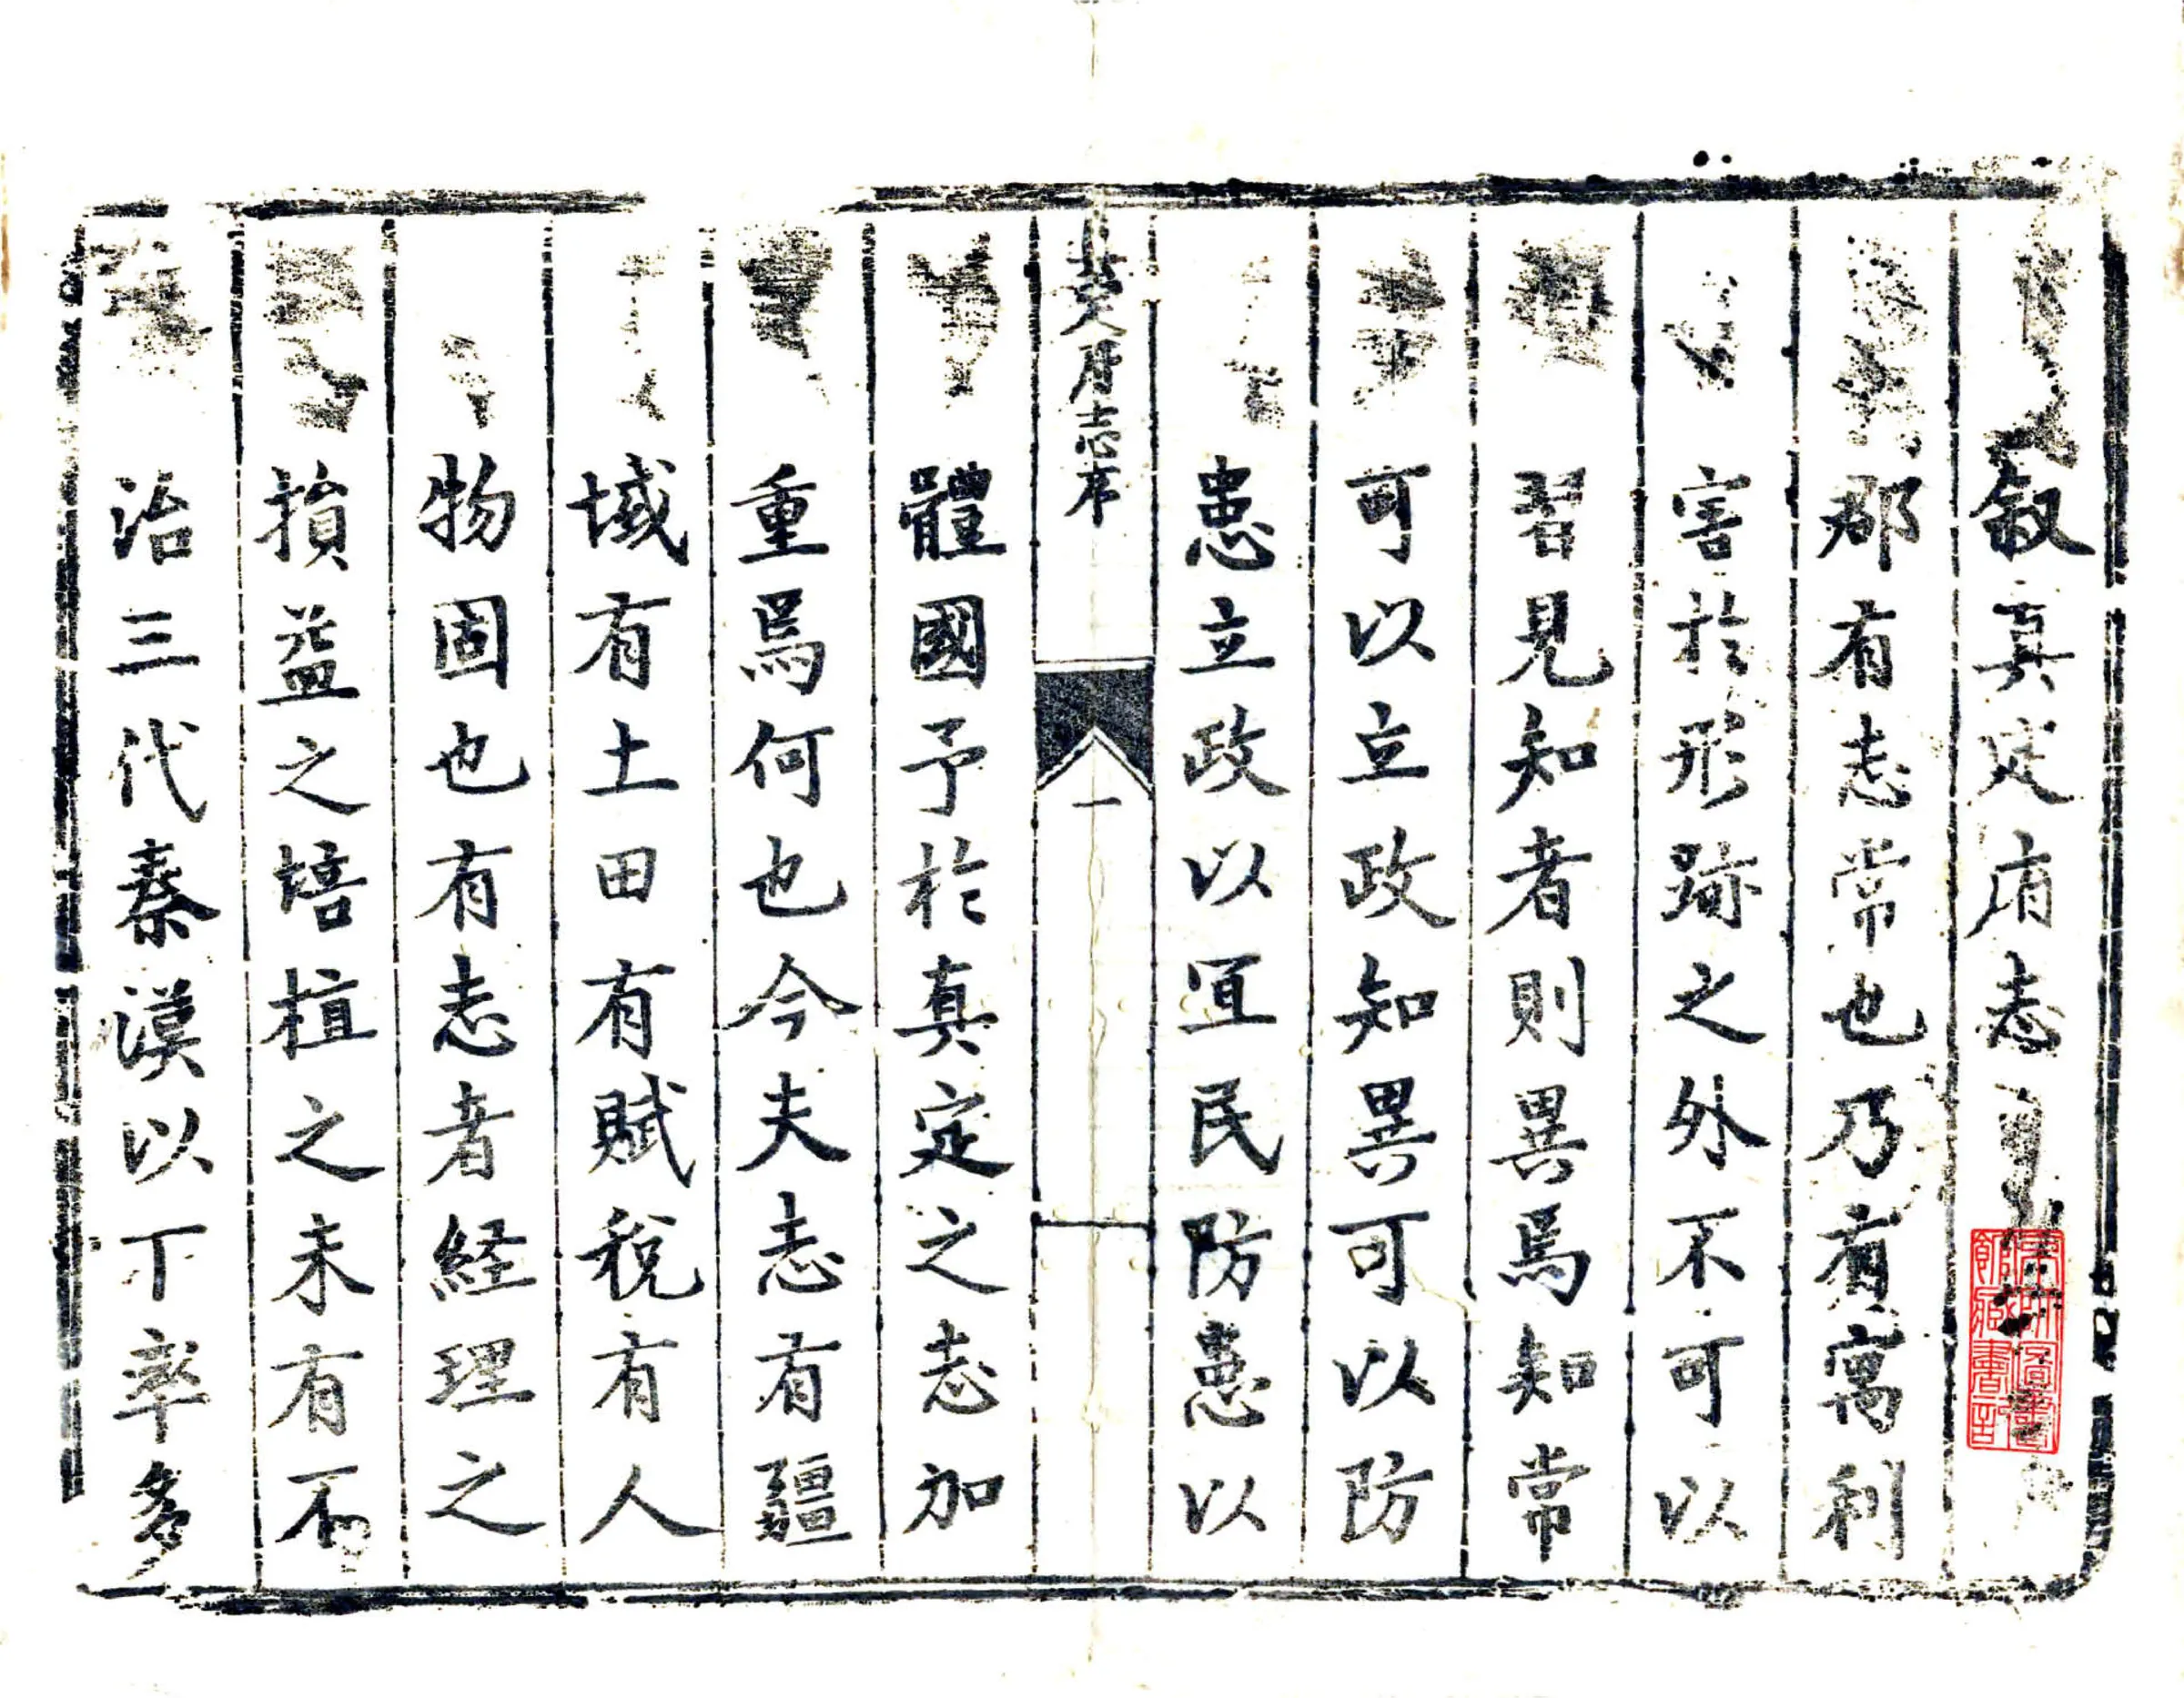 叙真定府志
郡有志常也乃有寓利
害於形跡之外不可以
習見知者則異焉知常
可以立政知異可以防
患立政以宜民防患以
真定府志序
一
體國予於真定之志加
重焉何也今夫志有疆
域有土田有賦稅有人
物固也有志者経理之
損益之培植之未有不
治三代秦漢以丁率多